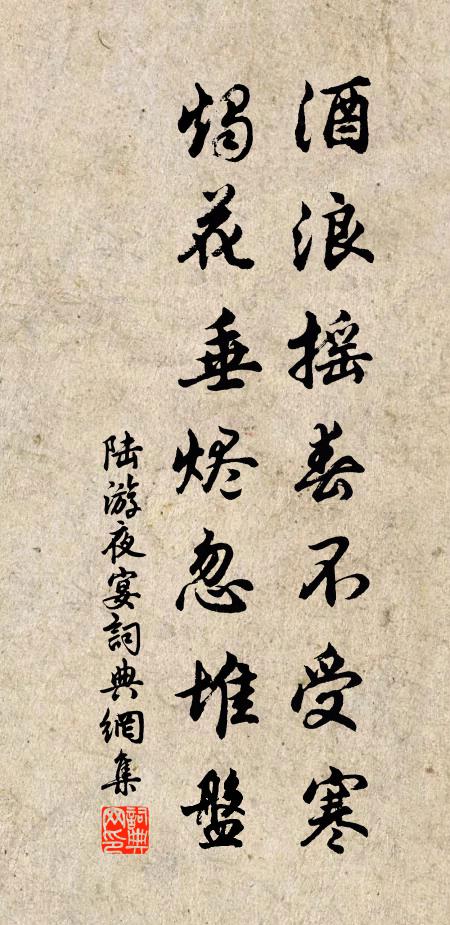 酒浪摇春不受寒
烛花垂烬忽堆盤
陆游夜宴詞典網集
詞典网印